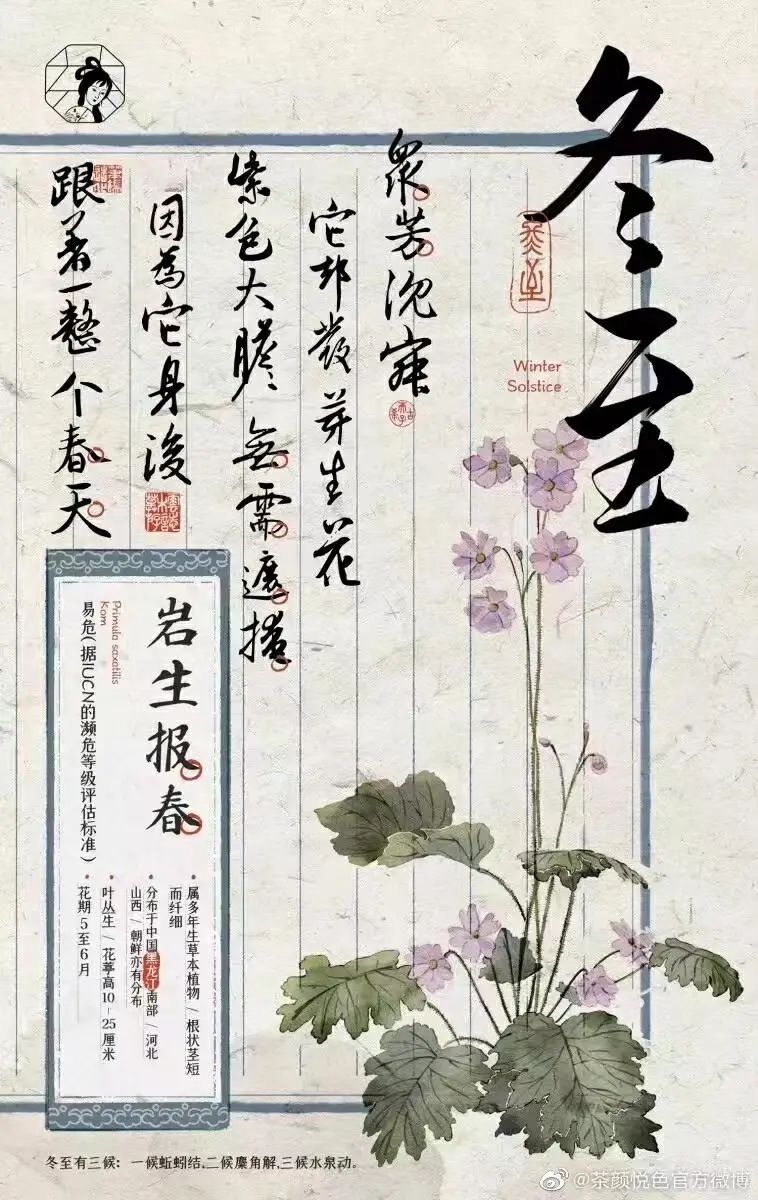 冬至
Winter
Solstice
眾芳沉寂
它却發芽生花
紫色大膽無需遮掩
因為它身後
跟着一整个春天
岩生报春
Primula saxatilis
Kom
易危(据IUCN的濒危等级评估标准)
• 属多年生草本植物/根状茎短
而纤细
• 分布于中国黑龙江南部/河北
山西/朝鲜亦有分布
• 叶丛生/花葶高10-25厘米
• 花期5至6月
冬至有三候：一候蚯蚓结,二候麋角解,三候水泉动。
@茶颜悦色官方微博